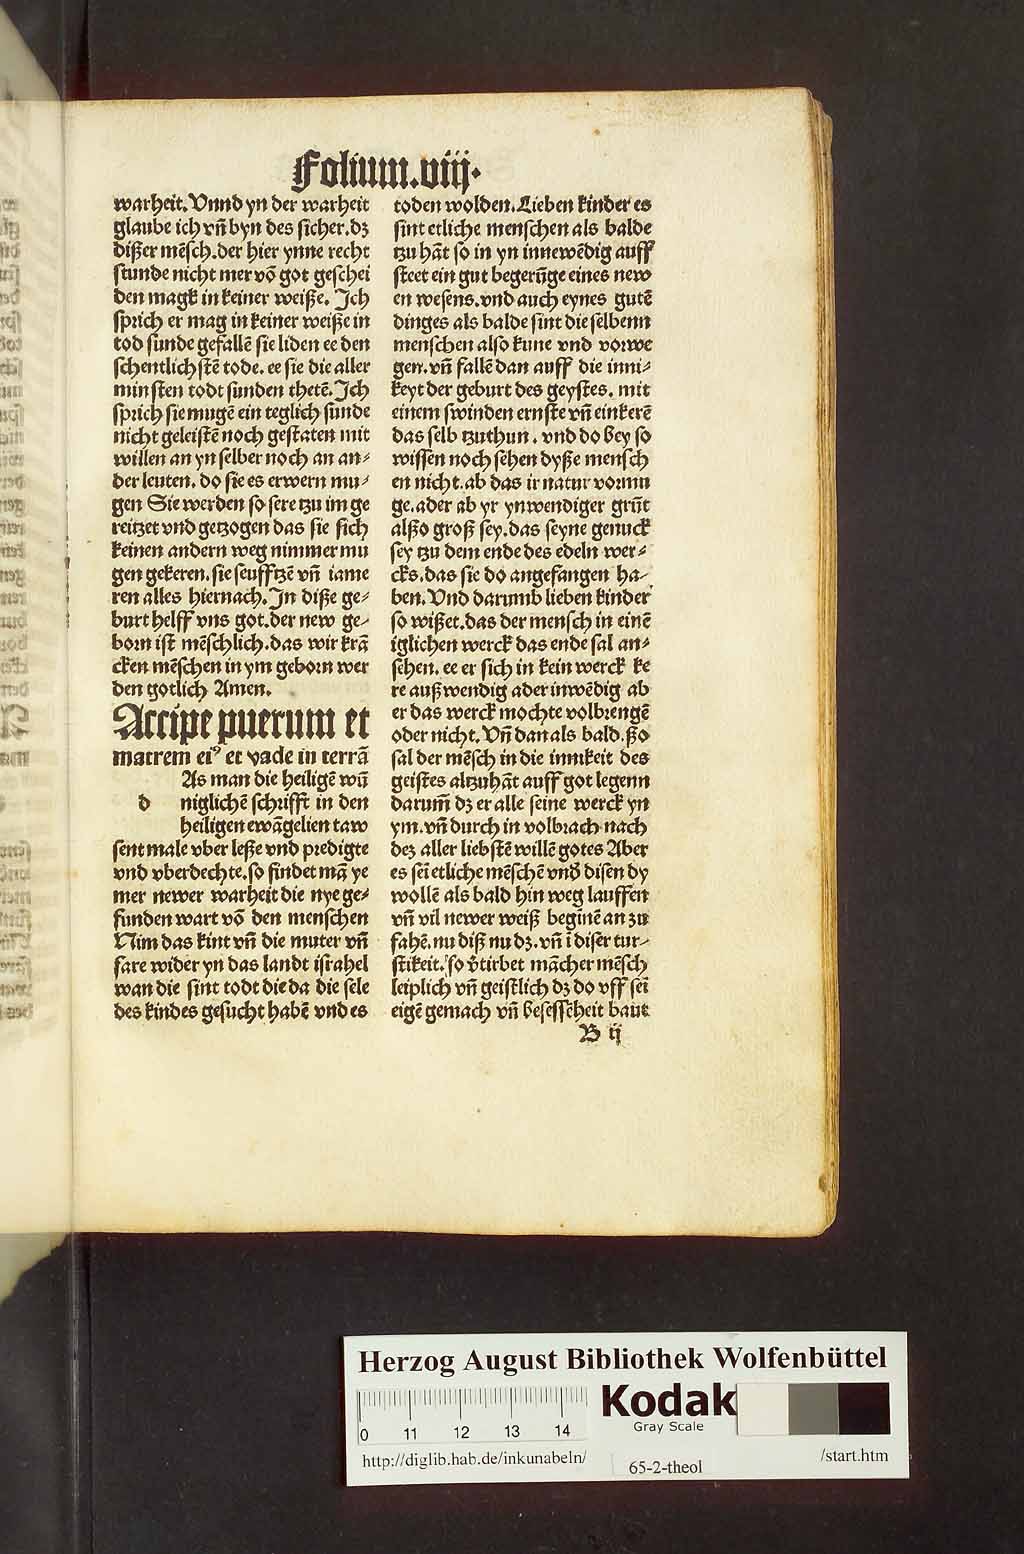 Folium.viij.
warheit. Vnnd yn der warheit
glaube ich vn̄ byn des sicher. dz
dißer mēsch. der hier ynne recht
stunde nicht mer vō got geschei
den magk in keiner weiße. Ich
sprich er mag in keiner weiße in
tod sunde gefallē sie liden ee den
schentlichstē tode. ee sie die aller
minsten todt sunden thetē. Ich
sprich sie mugē ein teglich sunde
nicht geleistē noch gestaten mit
willen an yn selber noch an an⸗
der leuten. do sie es erwern mu⸗
gen Sie werden so sere tzu im ge
reitzet vnd getzogen das sie sich
keinen andern weg nimmer mu
gen gekeren. sie seufftzē vn̄ iame
ren alles hiernach. In diße ge⸗
burt helff vns got. der new ge⸗
born ist mēschlich. das wir krā
cken mēschen in ym geborn wer
den gotlich Amen.
Accipe puerum et
matrem eiꝰ et vade in terrā
d As man die heiligē wū
niglichē schrifft in den
heiligen ewāgelien taw
sent male vber leße vnd predigte
vnd vberdechte. so findet mā ye
mer newer warheit die nye ge⸗
funden wart vō den menschen
Nim das kint vn̄ die muter vn̄
fare wider yn das landt israhel
wan die sint todt die da die sele
des kindes gesucht habē vnd es
toden wolden. Lieben kinder es
sint etliche menschen als balde
tzu hāt so in yn innewēdig auff
steet ein gut begerūge eines new
en wesens. vnd auch eynes gutē
dinges als balde sint die selbenn
menschen also kune vnd vorwe
gen. vn̄ fallē dan auff die inni⸗
keyt der geburt des geystes. mit
einem swinden ernste vn̄ einkerē
das selb tzuthun. vnd do bey so
wissen noch sehen dyße mensch
en nicht. ab das ir natur vormu
ge. ader ab yr ynwendiger grūt
alßo groß sey. das seyne genuck
sey tzu dem ende des edeln wer⸗
cks. das sie do angefangen ha⸗
ben. Vnd darumb lieben kinder
so wißet. das der mensch in einē
iglichen werck das ende sal an⸗
sehen. ee er sich in kein werck ke
re außwendig ader inwēdig ab
er das werck mochte volbrengē
oder nicht. Vn̄ dan als bald. ßo
sal der mēsch in die innikeit des
geistes altzuhāt auff got legenn
darum̄ dz er alle seine werck yn
ym. vn̄ durch in volbrach nach
dez aller liebstē willē gotes Aber
es sei etliche mēschē vnd̄ disen dy
wollē als bald hin weg lauffen
vn̄ vil newer weiß beginē an zu
fahē. nu diß nu dz. vn̄ ī diser tur⸗
stikeit. so v̄tirbet mācher mēsch
leiplich vn̄ geistlich dz do vff sei
eigē gemach vn̄ besessēheit baut
B ij
Herzog August Bibliothek Wolfenbüttel
Kodak
Gray Scale
0 11 12 13 14
http://diglib.hab.de/inkunabeln/ 65-2-theol /start.htm